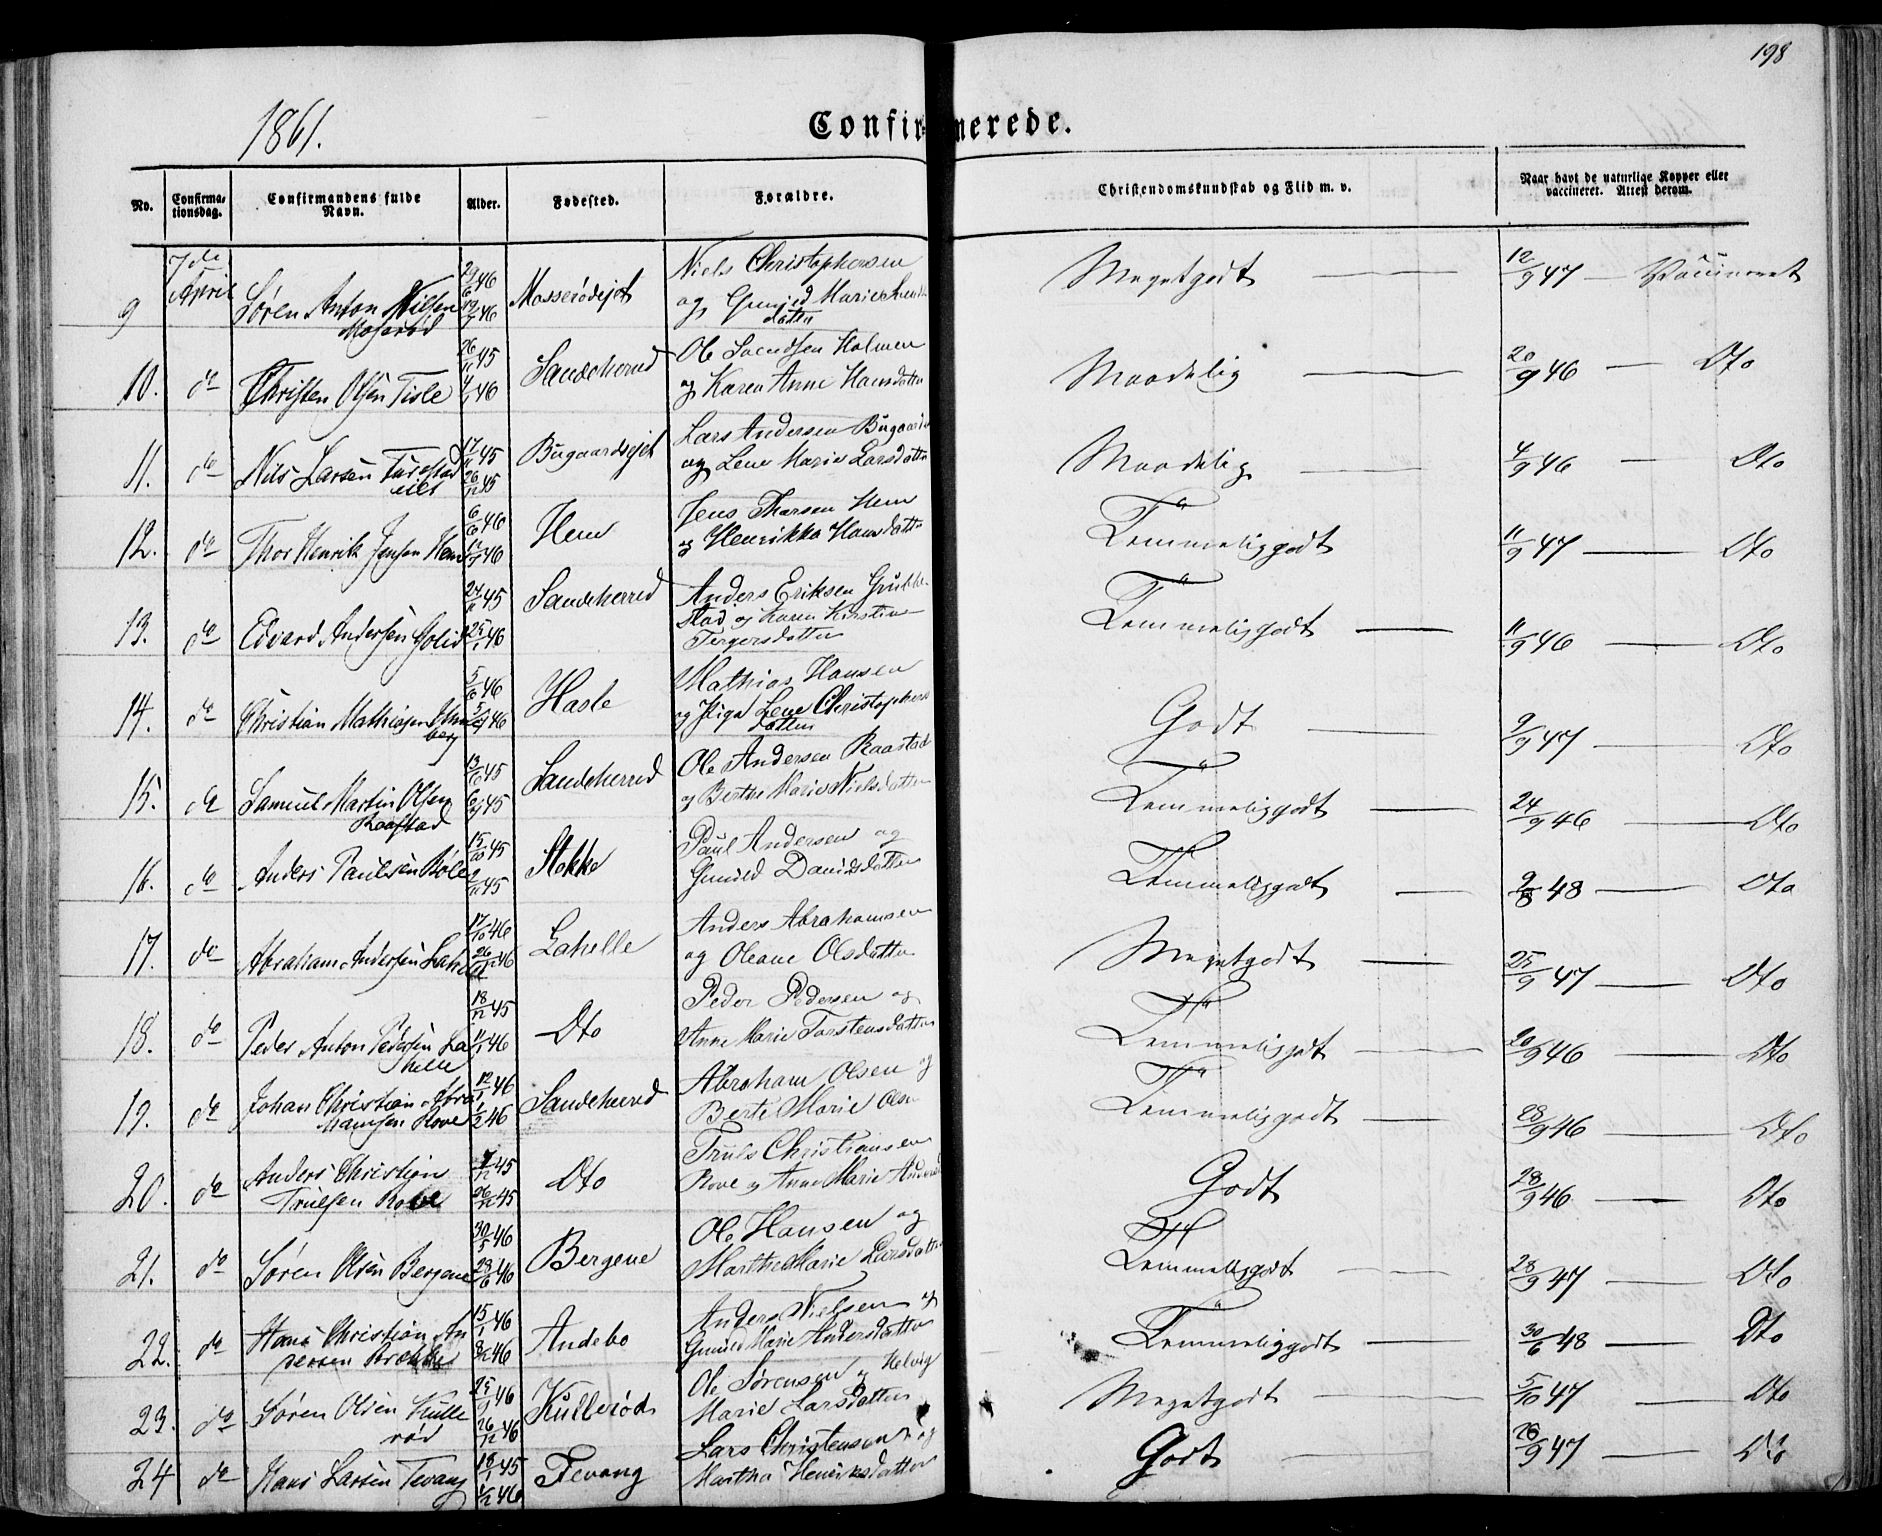 198
1861.
Confirmerede.
No. Confirmationsdag. Confirmandens fulde Navn. Alder. Fødested. Forældre. Christendomskundskab og Flid m. v. Naar havt de naturlige Kopper eller vaccineret. Attest derom.
9 7de April Søren Anton Nilsen Moserød 29/6 46 19/7 46 Mosserødejet Niels Christophersen og Gunild Marie datter Megetgodt 12/9 47 — Vaccineret
10. do Christen Olsen Tisle 26/11 45 4/1 46 Sandeherred Ole Svendsen Holmen og Karen Anne Hansdatter Maadelig 20/9 46 — Dto
11. do Nils Larsen 17/11 45 26/12 45 Bugaardsejet Lars Andersen Bugaards og Lene Marie Larsdatter Maadelig 4/9 46 — Dto
12. do Thor Henrik Jensen Hem 6/6 46 12/7 46 Hem Jens Thorsen Hem og Henrikke Hansdatter Temmeliggodt 11/9 47 — Dto
13. do Edvard Andersen Holid 24/11 45 25/1 46 Sandeherred Anders Eriksen stad og Karen Kirstine Tergersdatter Temmeliggodt 11/9 46 — Dto
14. do Christian Mathiasen berg 5/6 46 46 Hasle Mathias Hansen og Pige Lene Christophers datter Godt 9/9 47 — Dto
15. do Samuel Martin Olsen Raastad 13/10 45 45 Sandeherred Ole Andersen Raastad og Berthe Marie Nielsdatter Temmeliggodt 24/9 46 — Dto
16. do Anders Paulsen Bøle 15/10 45 45 Stokke Paul Andersen og Gunild Davidsdatter Temmeliggodt 9/8 48 — Dto
17. do Abraham Andersen Lahelle 17/10 46 26/12 46 Lahelle Anders Abrahamsen og Oleane Olsdatter Megetgodt 25/9 47 — Dto
18. do Peder Anton Pedersen Lahelle 18/12 45 46 Dto Peder Pedersen og Anne Marie Torstensdatter Temmeliggodt 20/9 46 — Dto
19. do Johan Christian Abrahamsen Rove 12/1 46 1/2 46 Sandeherred Abraham Olsen og Berte Marie Olsen Temmeliggodt 28/9 46 — Dto
20. do Anders Christian Truelsen Rove 45 26/12 45 Dto Truls Christiansen Rove og Anne Marie Andersd Godt 28/9 46 — Dto
21. do Søren Olsen Bergene 30/5 46 28/6 46 Bergene Ole Hansen og Marthe Marie Larsdatter Temmeliggodt 28/9 47 — Dto
22. do Hans Christian An 15/1 46 8/2 46 Andebo Anders Nielsen og Gunild Marie Andersdatter Temmeliggodt 30/6 48 — Dto
23. do Søren Olsen Kullerød 25/9 46 26/12 46 Kullerød Ole Sørensen og Helvig Marie Larsdatter Megetgodt 5/10 47 — Dto
24 do Hans Larsen Fevang 45 1/12 46 Fevang Lars Christensen og Martha Henriksdatter Godt 28/9 47 — Dto